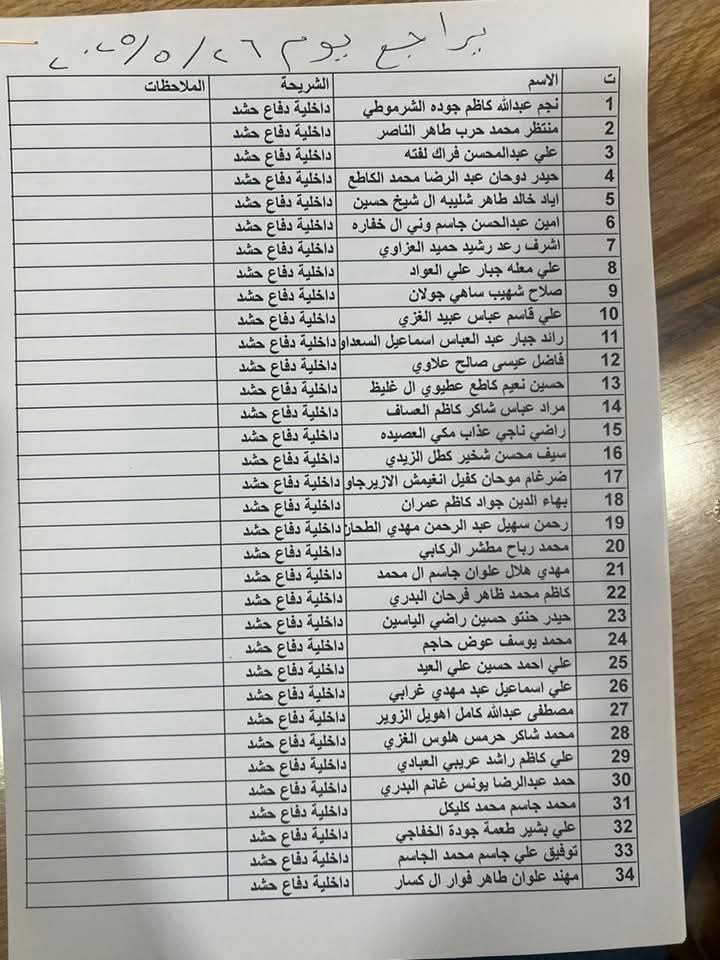 يراجع يوم ٢٦/٥/٢٠٢٥
ت الاسم الشريحة الملاحظات
1 نجم عبدالله كاظم جوده الشرموطي داخلية دفاع حشد
2 منتظر محمد حرب طاهر الناصر داخلية دفاع حشد
3 علي عبدالمحسن فراك لفته داخلية دفاع حشد
4 حيدر دوحان عبد الرضا محمد الكاطع داخلية دفاع حشد
5 اياد خالد طاهر شليبه ال شيخ حسين داخلية دفاع حشد
6 امين عبدالحسن جاسم وني ال خفاره داخلية دفاع حشد
7 اشرف رعد رشيد حميد العزاوي داخلية دفاع حشد
8 علي معله جبار علي العواد داخلية دفاع حشد
9 صلاح شهيب ساهي جولان داخلية دفاع حشد
10 علي قاسم عباس عبيد الغزي داخلية دفاع حشد
11 رائد جبار عبد العباس اسماعيل السعداو داخلية دفاع حشد
12 فاضل عيسى صالح علاوي داخلية دفاع حشد
13 حسين نعيم كاطع عطيوي ال غليظ داخلية دفاع حشد
14 مراد عباس شاكر كاظم العساف داخلية دفاع حشد
15 راضي ناجي عذاب مكي العصيده داخلية دفاع حشد
16 سيف محسن شخير كطل الزيدي داخلية دفاع حشد
17 ضرغام موحان كفيل انغيمش الازيرجاو داخلية دفاع حشد
18 بهاء الدين جواد كاظم عمران داخلية دفاع حشد
19 رحمن سهيل عبد الرحمن مهدي الطحان داخلية دفاع حشد
20 محمد رباح مطشر الركابي داخلية دفاع حشد
21 مهدي هلال علوان جاسم ال محمد داخلية دفاع حشد
22 كاظم محمد ظاهر فرحان البدري داخلية دفاع حشد
23 حيدر حنتو حسين راضي الياسين داخلية دفاع حشد
24 محمد يوسف عوض حاجم داخلية دفاع حشد
25 علي احمد حسين علي العيد داخلية دفاع حشد
26 علي اسماعيل عبد مهدي غرابي داخلية دفاع حشد
27 مصطفى عبدالله كامل اهويل الزوير داخلية دفاع حشد
28 محمد شاكر حرمس هلوس الغزي داخلية دفاع حشد
29 علي كاظم راشد عريبي العبادي داخلية دفاع حشد
30 حمد عبدالرضا يونس غانم البدري داخلية دفاع حشد
31 محمد جاسم محمد كليكل داخلية دفاع حشد
32 علي بشير طعمة جودة الخفاجي داخلية دفاع حشد
33 توفيق علي جاسم محمد الجاسم داخلية دفاع حشد
34 مهند علوان طاهر فوار ال كسار داخلية دفاع حشد